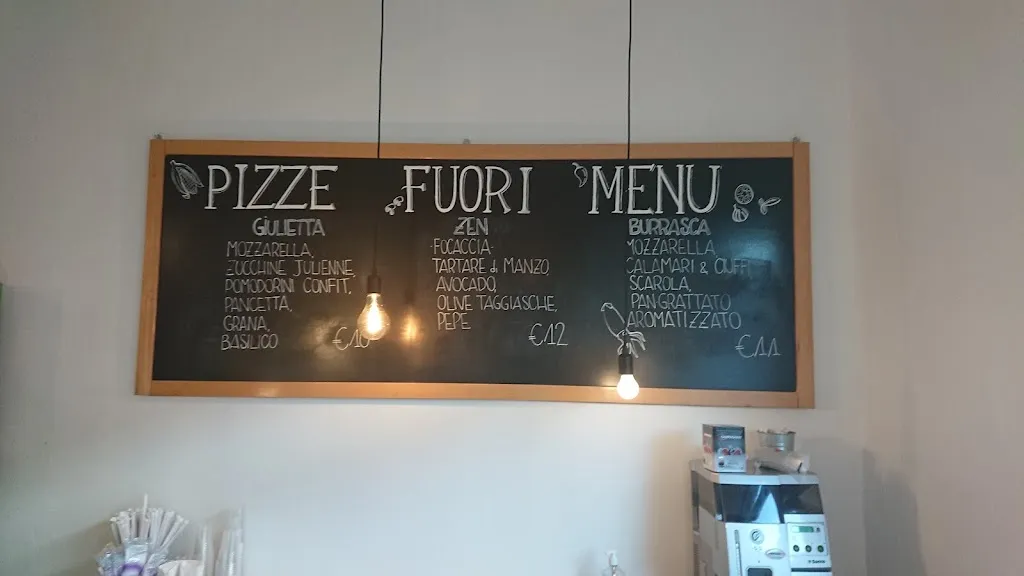 PIZZE FUORI MENU
GIULIETTA
MOZZARELLA,
ZUCCHINE JULIENNE,
POMODORINI CONFIT,
PANCETTA,
GRANA,
BASILICO
€10
ZEN
-FOCACCIA-
TARTARE di MANZO,
AVOCADO,
OLIVE TAGGIASCHE,
PEPE
€12
BURRASCA
MOZZARELLA,
CALAMARI & CIUFFI,
SCAROLA,
PANGRATTATO
AROMATIZZATO
€11